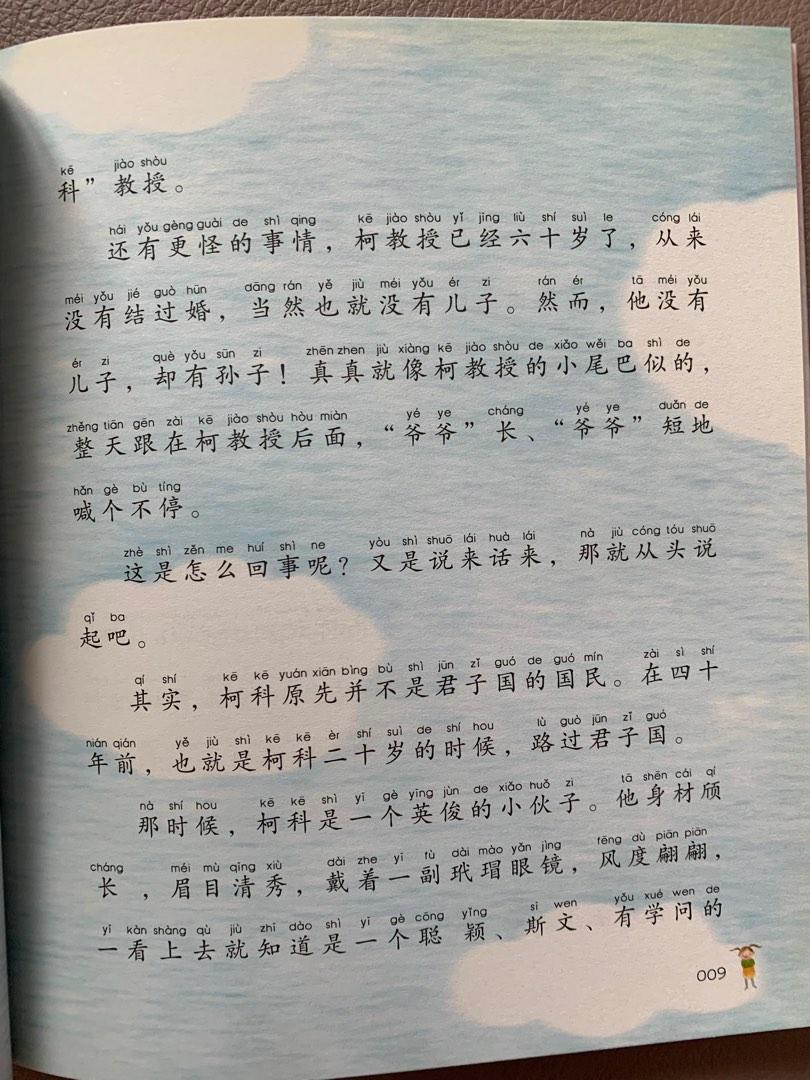 kē jiào shòu
科”教授。
hái yǒu gèng guài de shì qing kē jiào shòu yǐ jīng liù shí suì le cóng lái
还有更怪的事情，柯教授已经六十岁了，从来
méi yǒu jié guò hūn dāng rán yě jiù méi yǒu ér zi rán ér tā méi yǒu
没有结过婚，当然也就没有儿子。然而，他没有
ér zi què yǒu sūn zi zhēn zhen jiù xiàng kē jiào shòu de xiǎo wěi ba shì de
儿子，却有孙子！真真就像柯教授的小尾巴似的，
zhěng tiān gēn zài kē jiào shòu hòu miàn yé ye cháng yé ye duǎn de
整天跟在柯教授后面，“爷爷”长、“爷爷”短地
hǎn gè bù tíng
喊个不停。
zhè shì zěn me huí shì ne yòu shì shuō lái huà lái nà jiù cóng tóu shuō
这是怎么回事呢？又是说来话来，那就从头说
qǐ ba
起吧。
qí shí kē kē yuán xiān bìng bù shì jūn zǐ guó de guó mín zài sì shí
其实，柯科原先并不是君子国的国民。在四十
nián qián yě jiù shì kē kē èr shí suì de shí hou lù guò jūn zǐ guó
年前，也就是柯科二十岁的时候，路过君子国。
nà shí hou kē kē shì yī gè yīng jùn de xiǎo huǒ zi tā shēn cái qí
那时候，柯科是一个英俊的小伙子。他身材颀
cháng méi mù qīng xiù dài zhe yī fù dài mào yǎn jìng fēng dù piān piān
长，眉目清秀，戴着一副玳瑁眼镜，风度翩翩，
yī kàn shàng qù jiù zhī dào shì yī gè cōng yǐng sī wen yǒu xué wen de
一看上去就知道是一个聪颖、斯文、有学问的
009